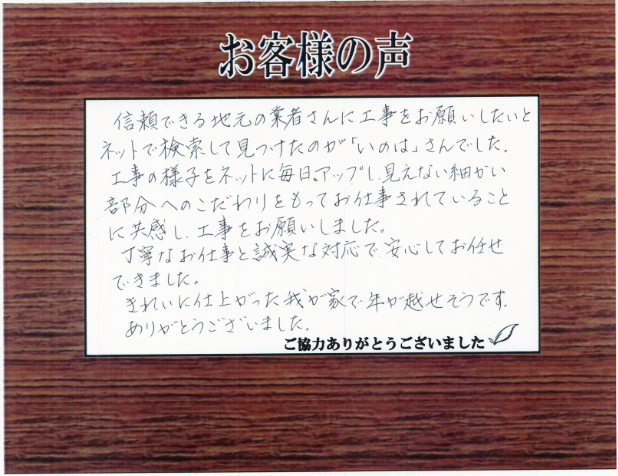 お客様の声
信頼できる地元の業者さんに工事をお願いしたいと
ネットで検索して見つけたのが「いのは」さんでした。
工事の様子をネットに毎日、アップし、見えない細かい
部分へのこだわりをもってお仕事されていること
に共感し、工事をお願いしました。
丁寧なお仕事と誠実な対応で安心してお任せ
できました。
きれいに仕上がった我が家で年が越せそうです。
ありがとうございました。
ご協力ありがとうございました